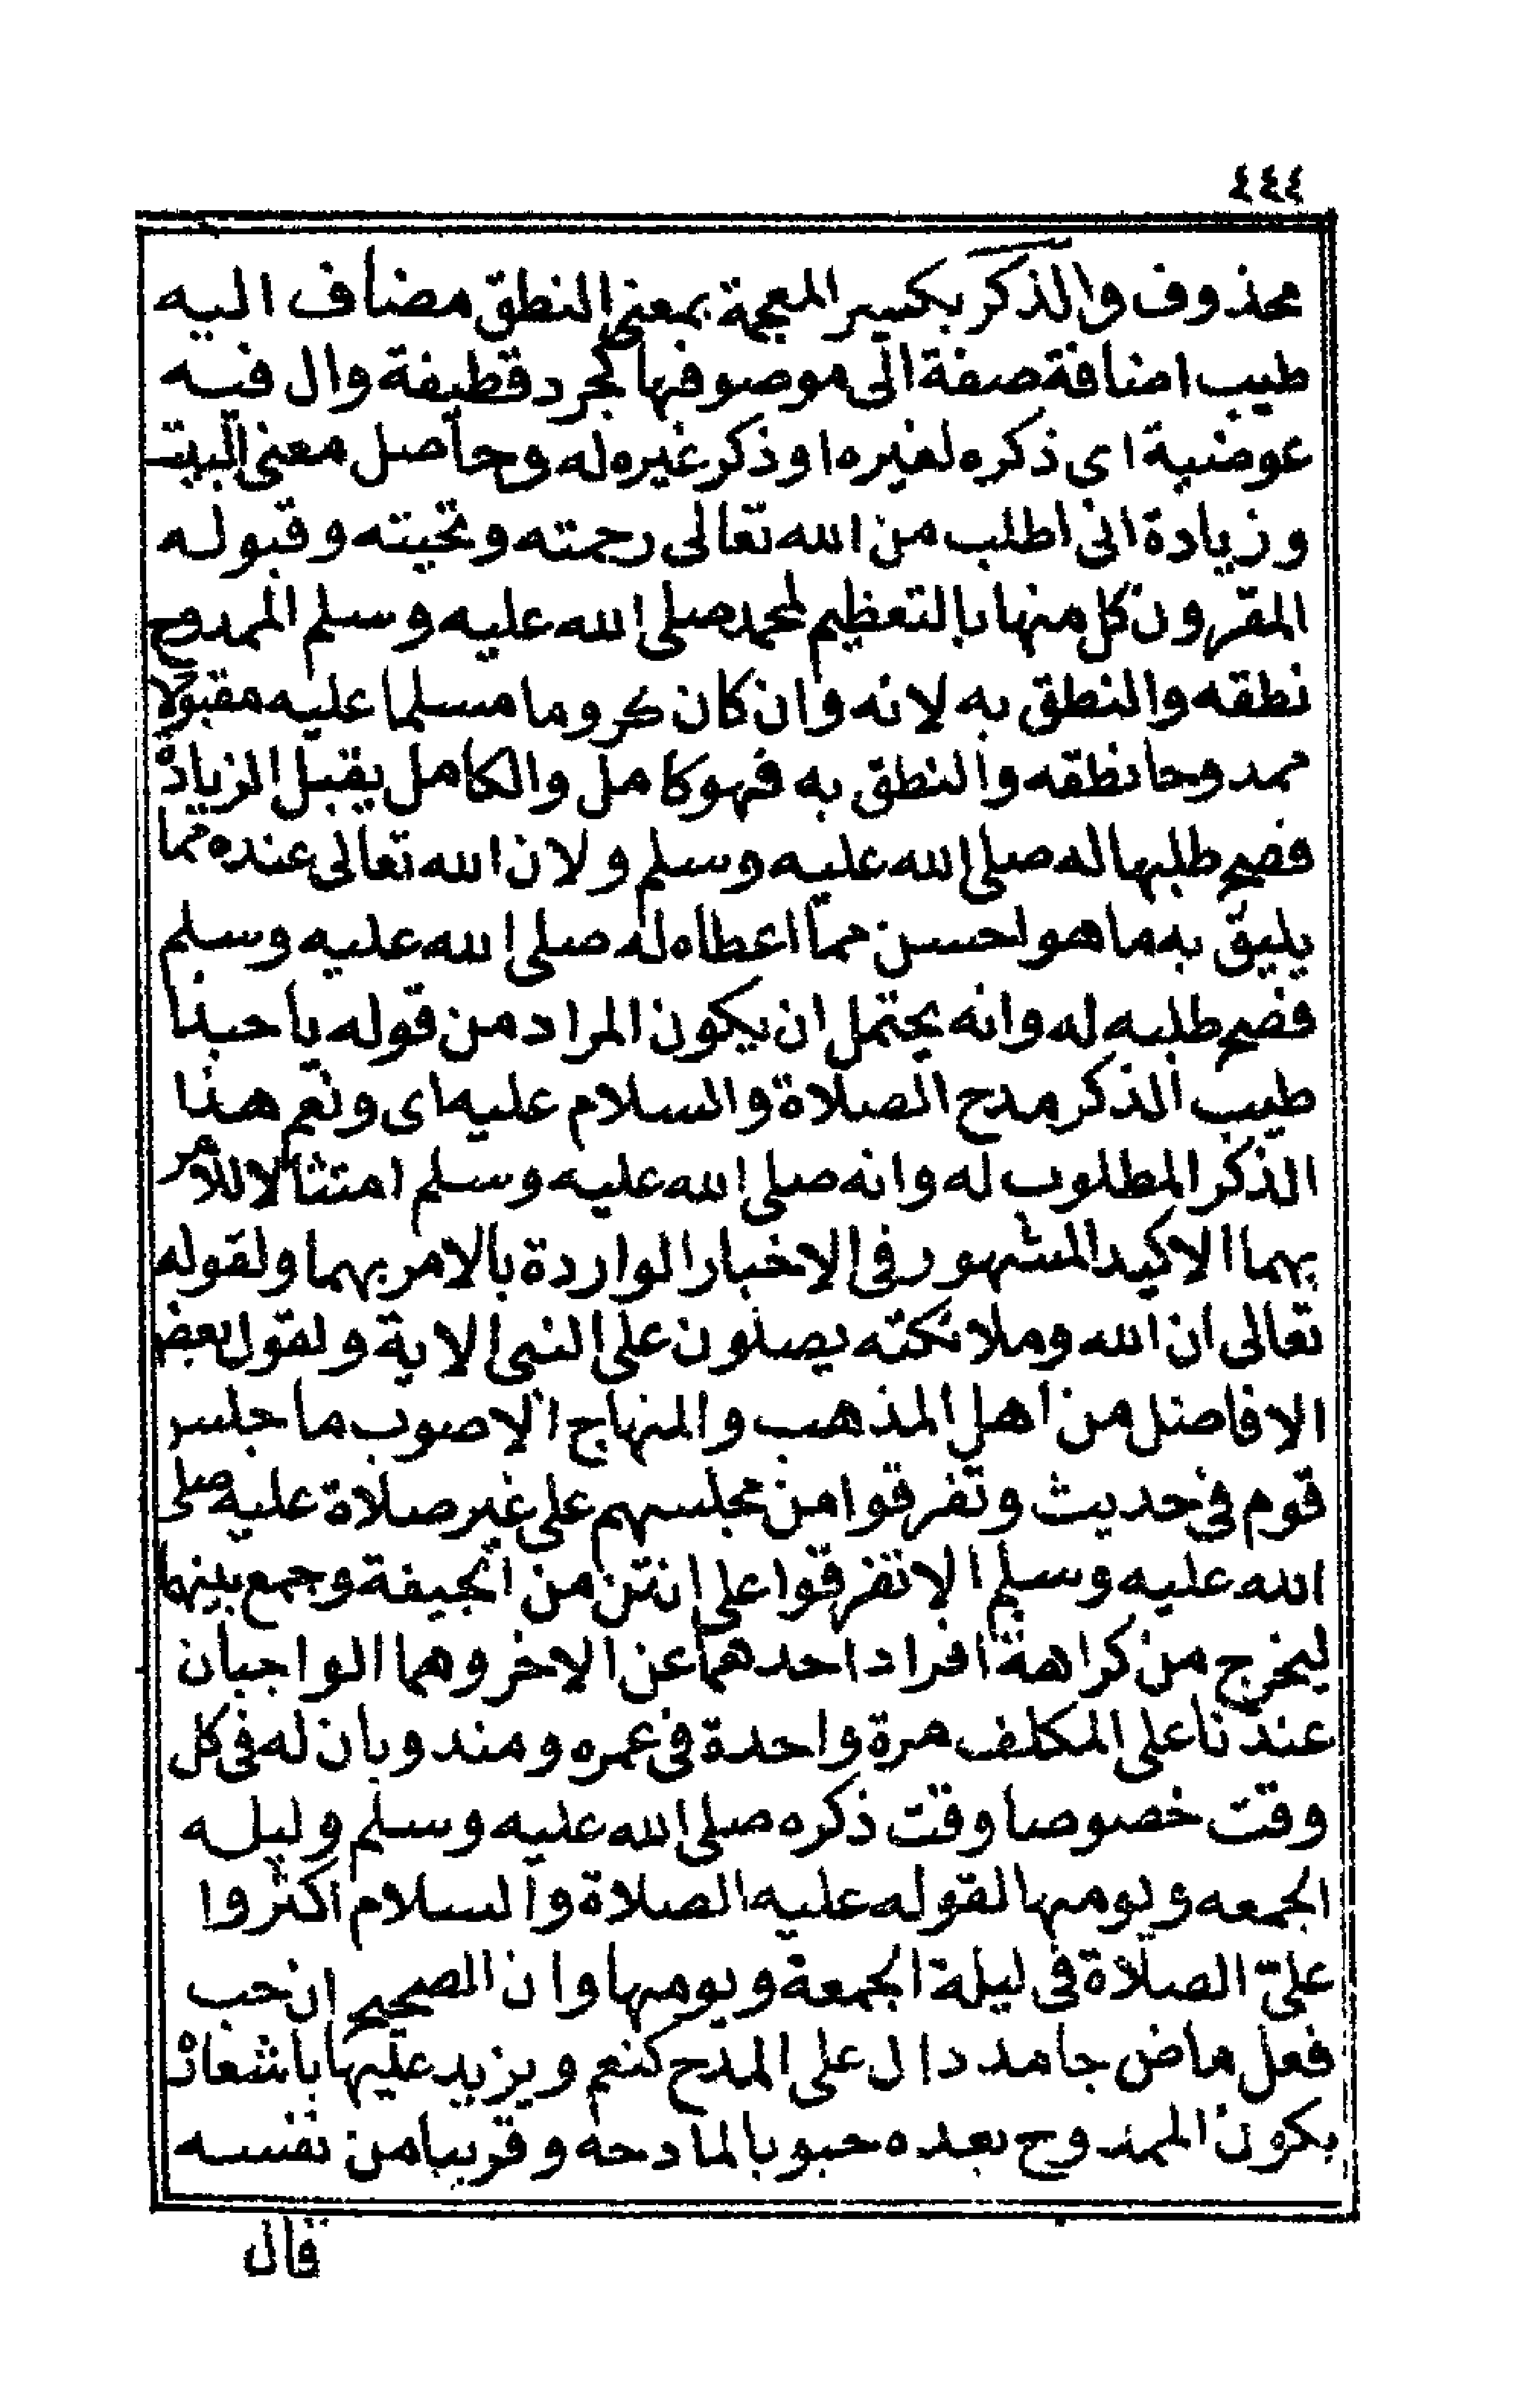 ٤٤٤
محذوف والذكر بكسر المعجمة بمعنى النطق مضاف اليه
طيب اضافة صفة الى موصوفها كجرد قطيفة وال فيه
عوضية اى ذكره لغيره او ذكر غيره له وحاصل معنى البيت
وزيادة انى اطلب من الله تعالى رحمته وتحيته وقبوله
المقرون كل منها بالتعظيم لمحمد صلى الله عليه وسلم الممدوح
نطقه والنطق به لانه وان كان كروما مسلما عليه مقبولا
ممدوحا نطقه والنطق به فهو كامل والكامل يقبل الزيادة
فصح طلبها له صلى الله عليه وسلم ولان الله تعالى عنده مما
يليق به ما هو احسن مما اعطاه له صلى الله عليه وسلم
فصح طلبه له وانه يحتمل ان يكون المراد من قوله يا حبذا
طيب الذكر مدح الصلاة والسلام عليه اى ونعم هذا
الذكر المطلوب له وانه صلى الله عليه وسلم امتثالا للامر
بهما الاكيد المشهور فى الاخبار الواردة بالامر بهما ولقوله
تعالى ان الله وملائكته يصلون على النبى الاية ولقول بعض
الافاضل من اهل المذهب والمنهاج الاصوب ما جلس
قوم فى حديث وتفرقوا من مجلسهم على غير صلاة عليه صلى
الله عليه وسلم الا تفرقوا على انتن من الجيفة وجمع بينهما
ليخرج من كراهة افراد احدهما عن الاخر وهما الواجبان
عندنا على المكلف مرة واحدة فى عمره ومندوبان له فى كل
وقت خصوصا وقت ذكره صلى الله عليه وسلم وليله
الجمعه ويومها لقوله عليه الصلاة والسلام اكثروا
علىّ الصلاة فى ليلة الجمعة ويومها وان الصحيح ان حب
فعل ماض جامد دال على المدح كنعم ويزيد عليها باشعاره
بكون الممدوح بعده حبوبا لمادحه وقريبا من نفسه
قال